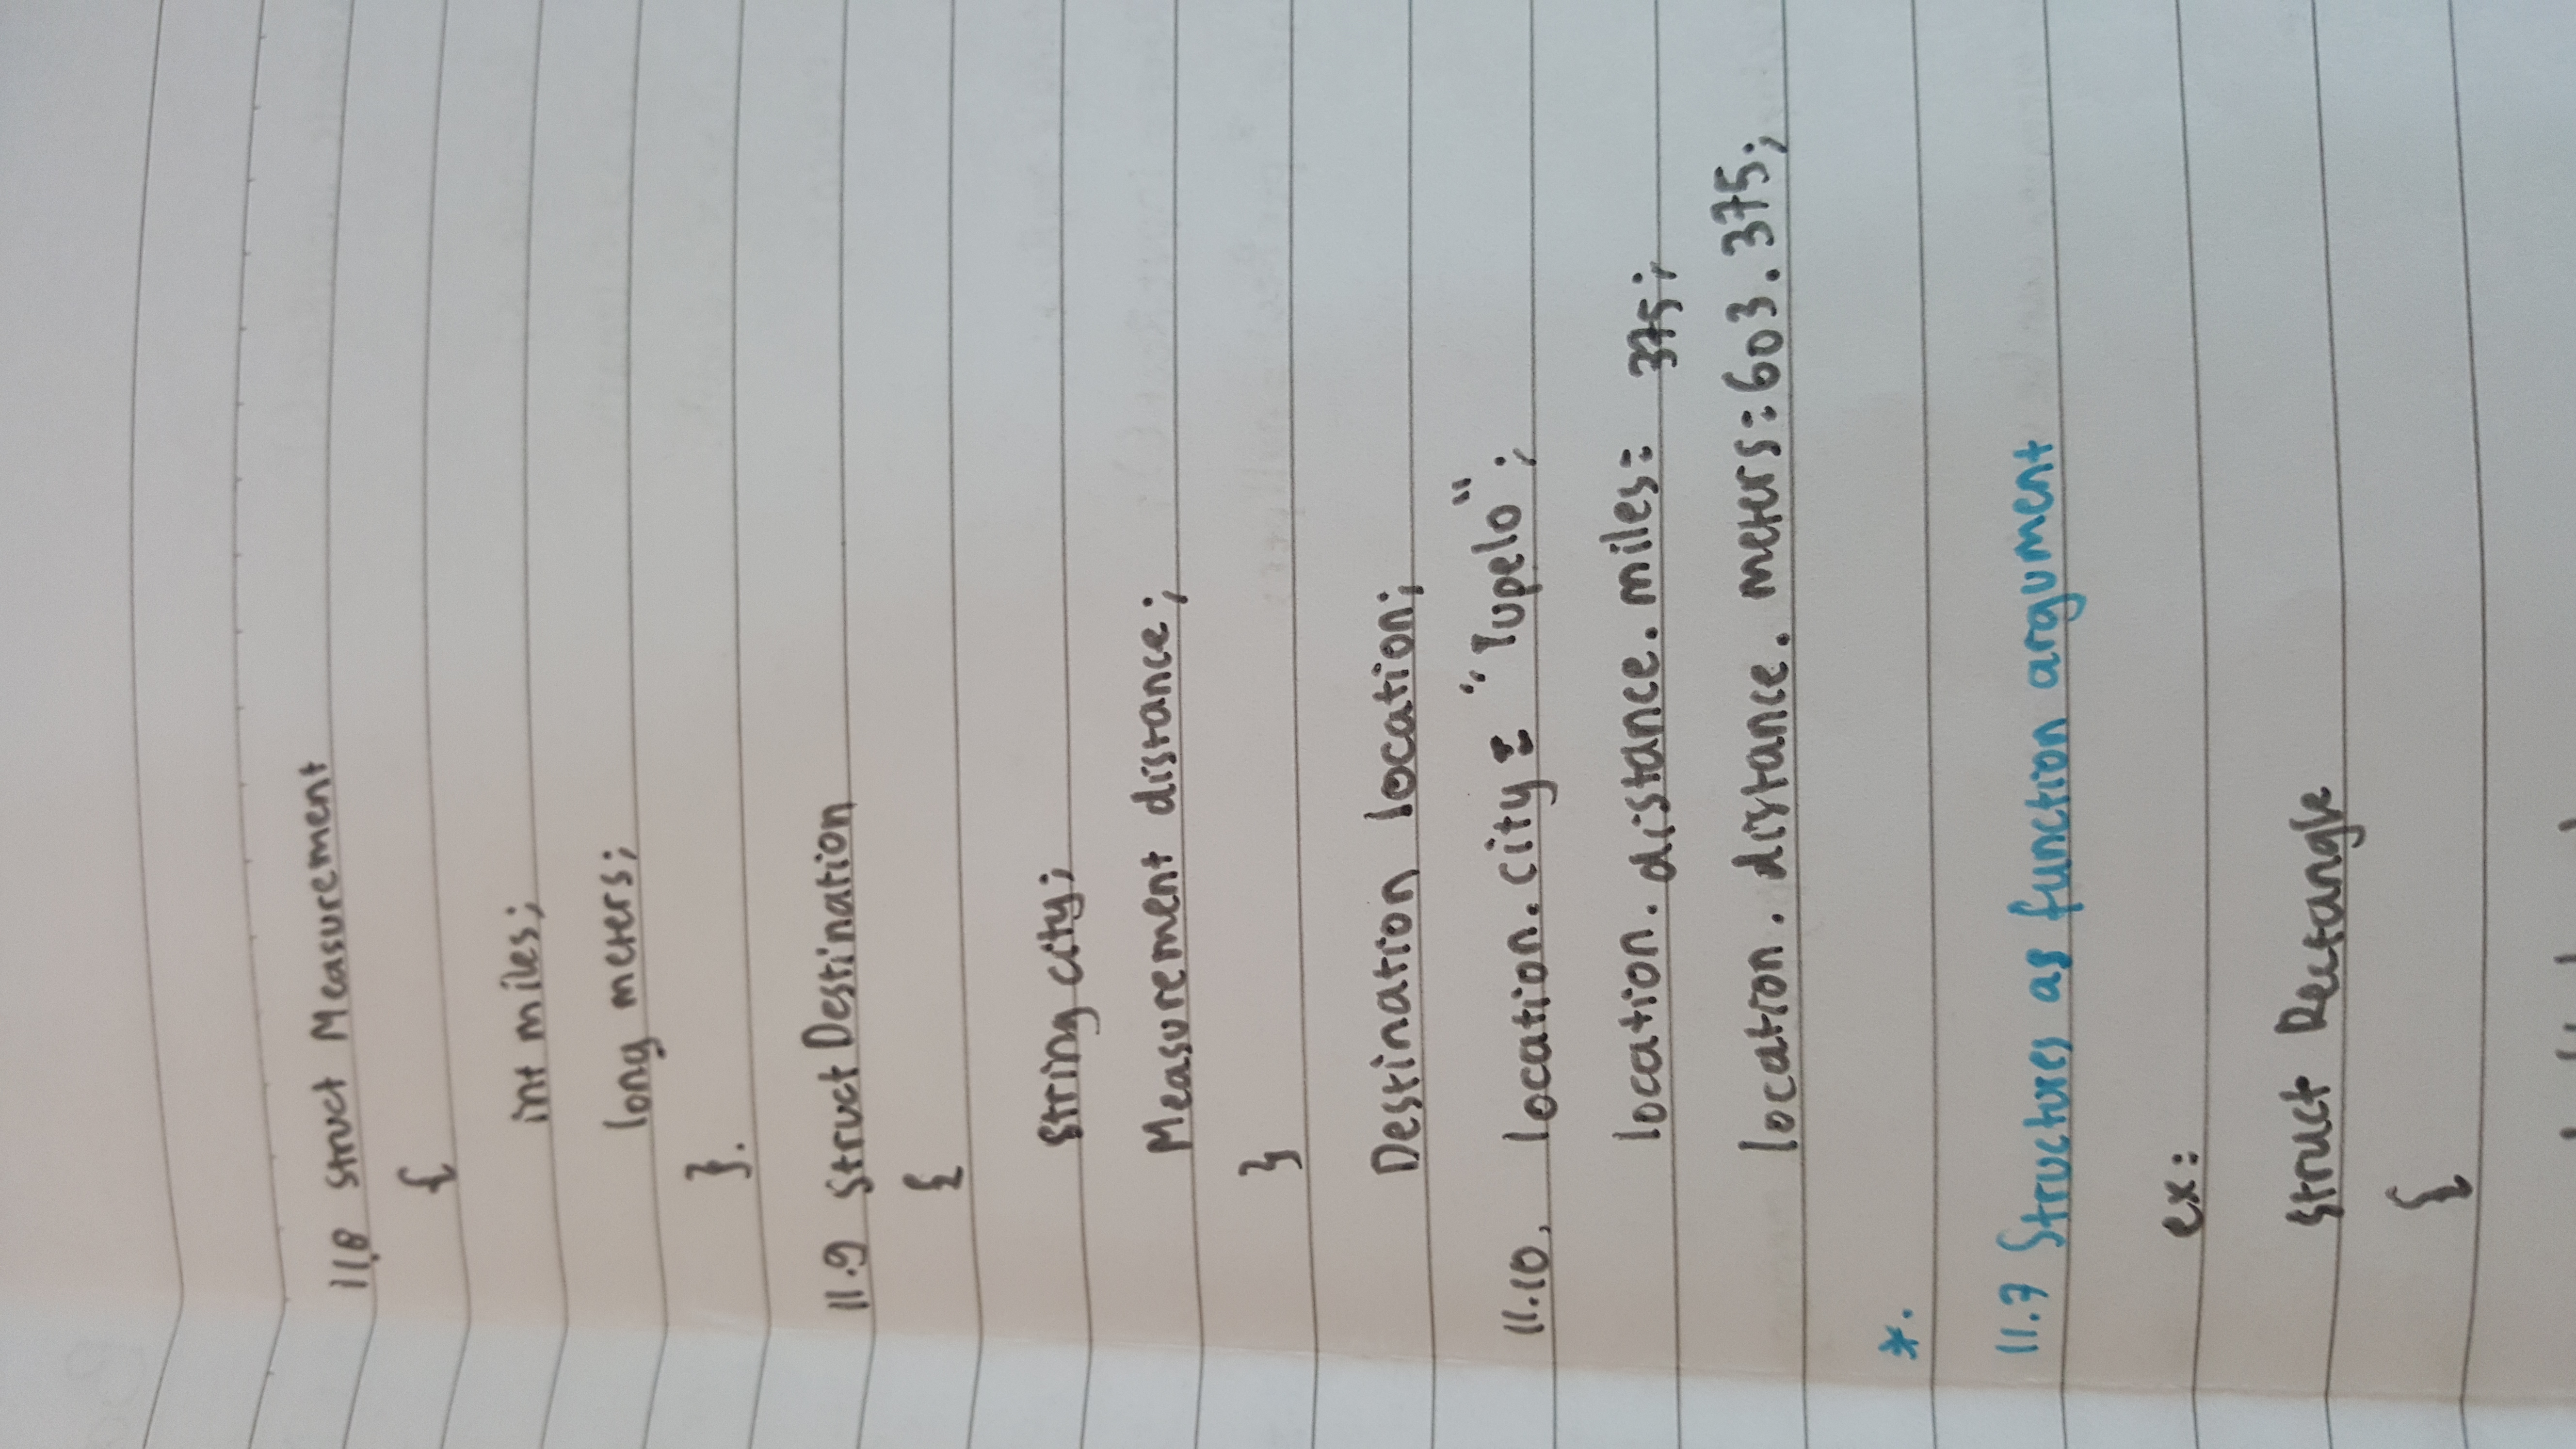 11.8 Struct Measurement
{
int miles;
long meters;
}.
11.9 Struct Destination
{
string city;
Measurement distance;
}
Destination location;
11.10. location.city = "Tupelo";
location.distance.miles = 375;
location.distance.meters = 603.375;
*.
11.7 Structures as function argument
ex:
struct Rectangle
{